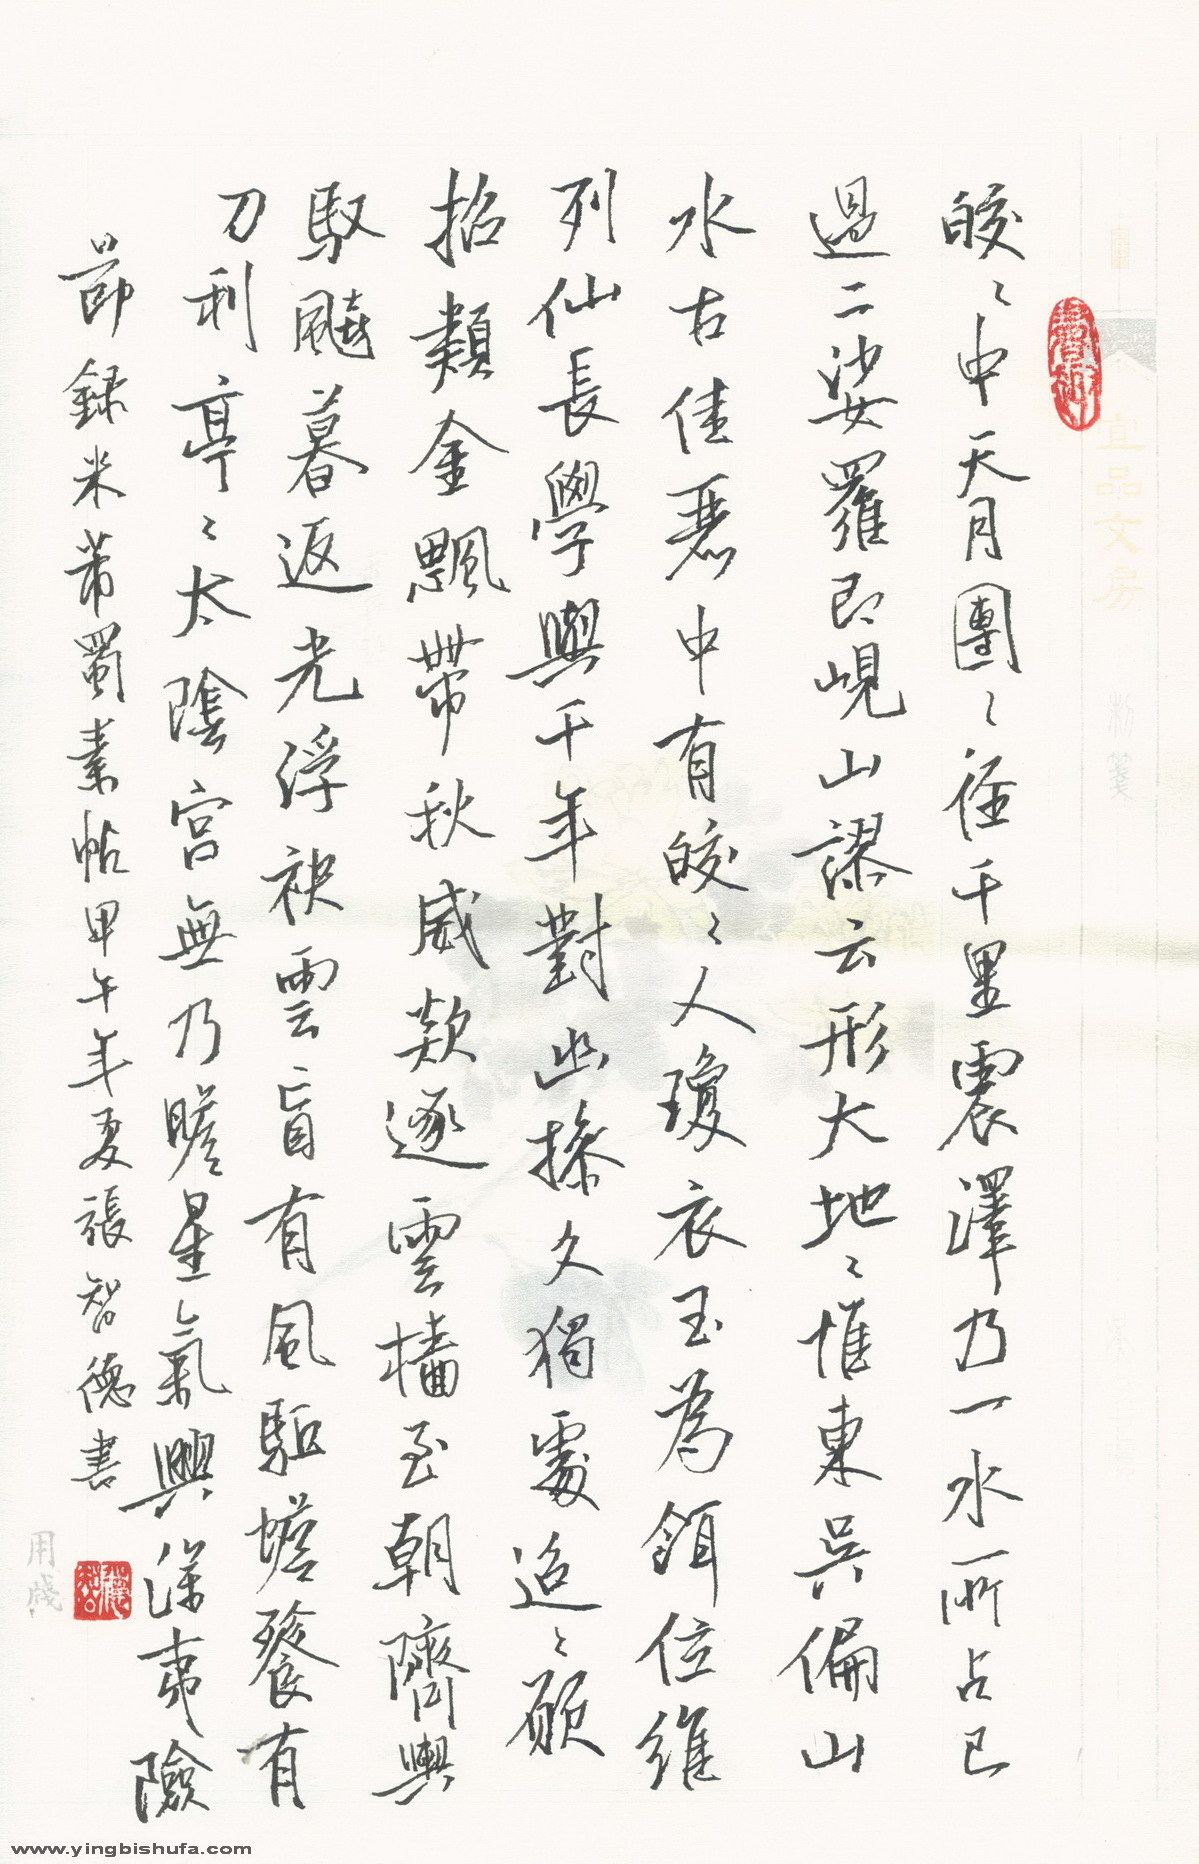 皎〻中天月團〻徑千里震澤乃一水所占已
過二娑羅即峴山謬云形大地〻惟東吳偏山
水古佳麗中有皎〻人瓊衣玉為餌位維
列仙長學與千年對幽操久獨處迢〻願
招類金飄帶秋威欻逐雲檣至朝隮輿
馭飈暮返光浮袂雲盲有風驅蟾餮有
刀利亭〻太陰宮無乃瞻星氣興深夷險
節録米芾蜀素帖甲午年夏張智德書
宜品文房
用牋
www.yingbishufa.com